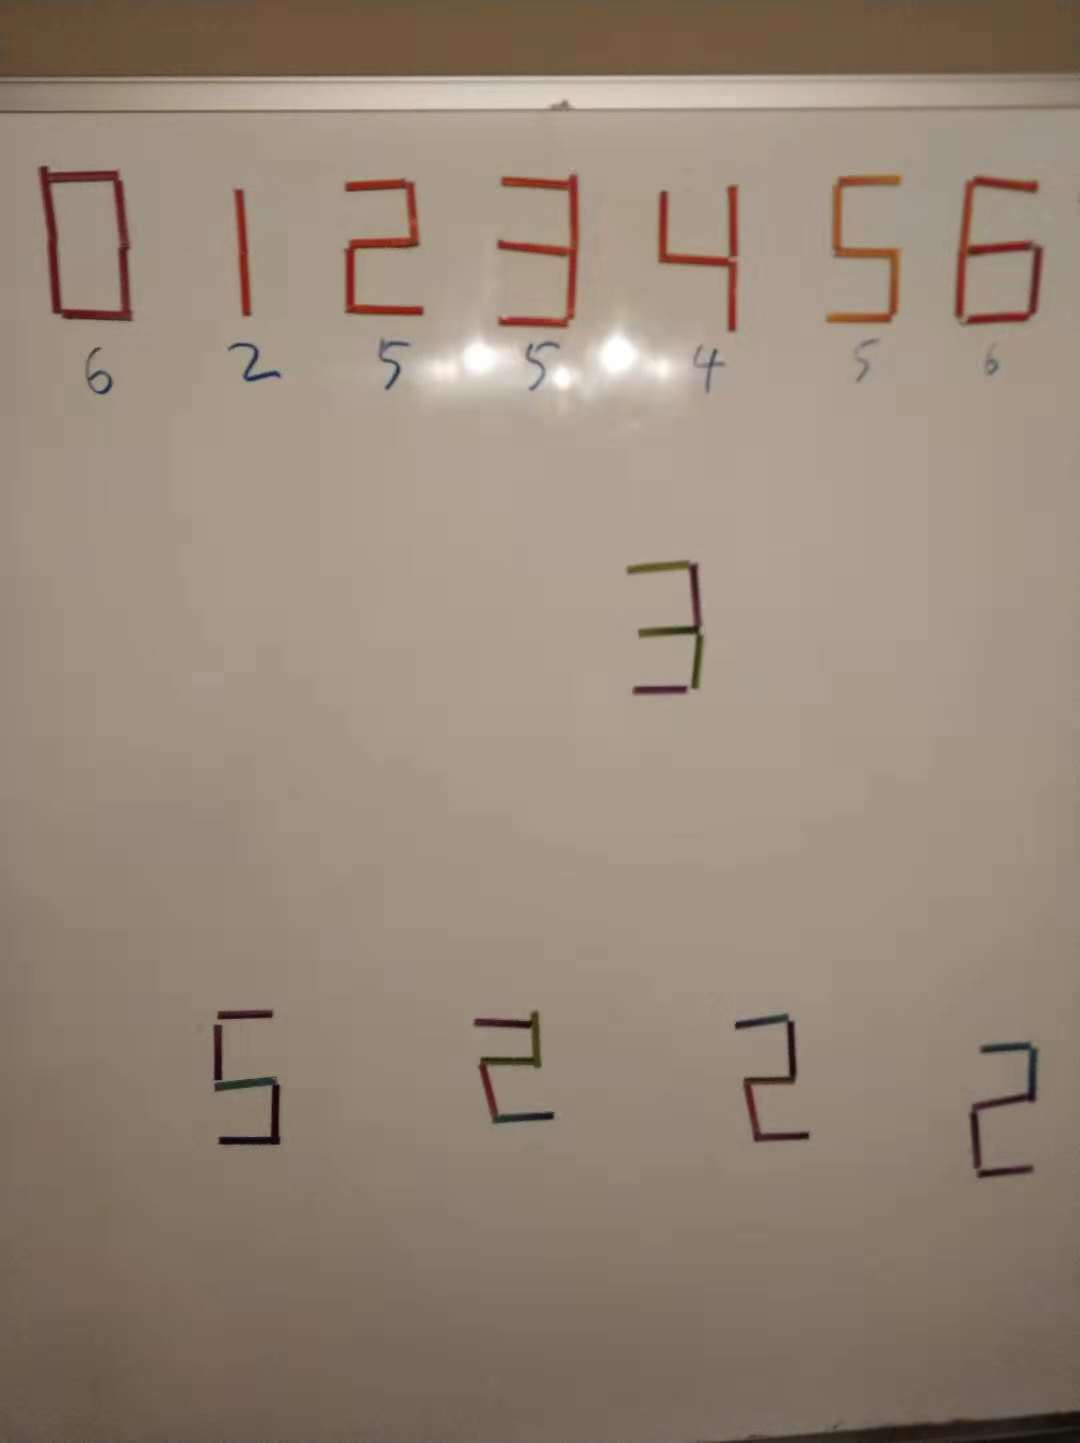 0 1 2 3 4 5 6
6 2 5 5 4 5 6
3
5 2 2 2